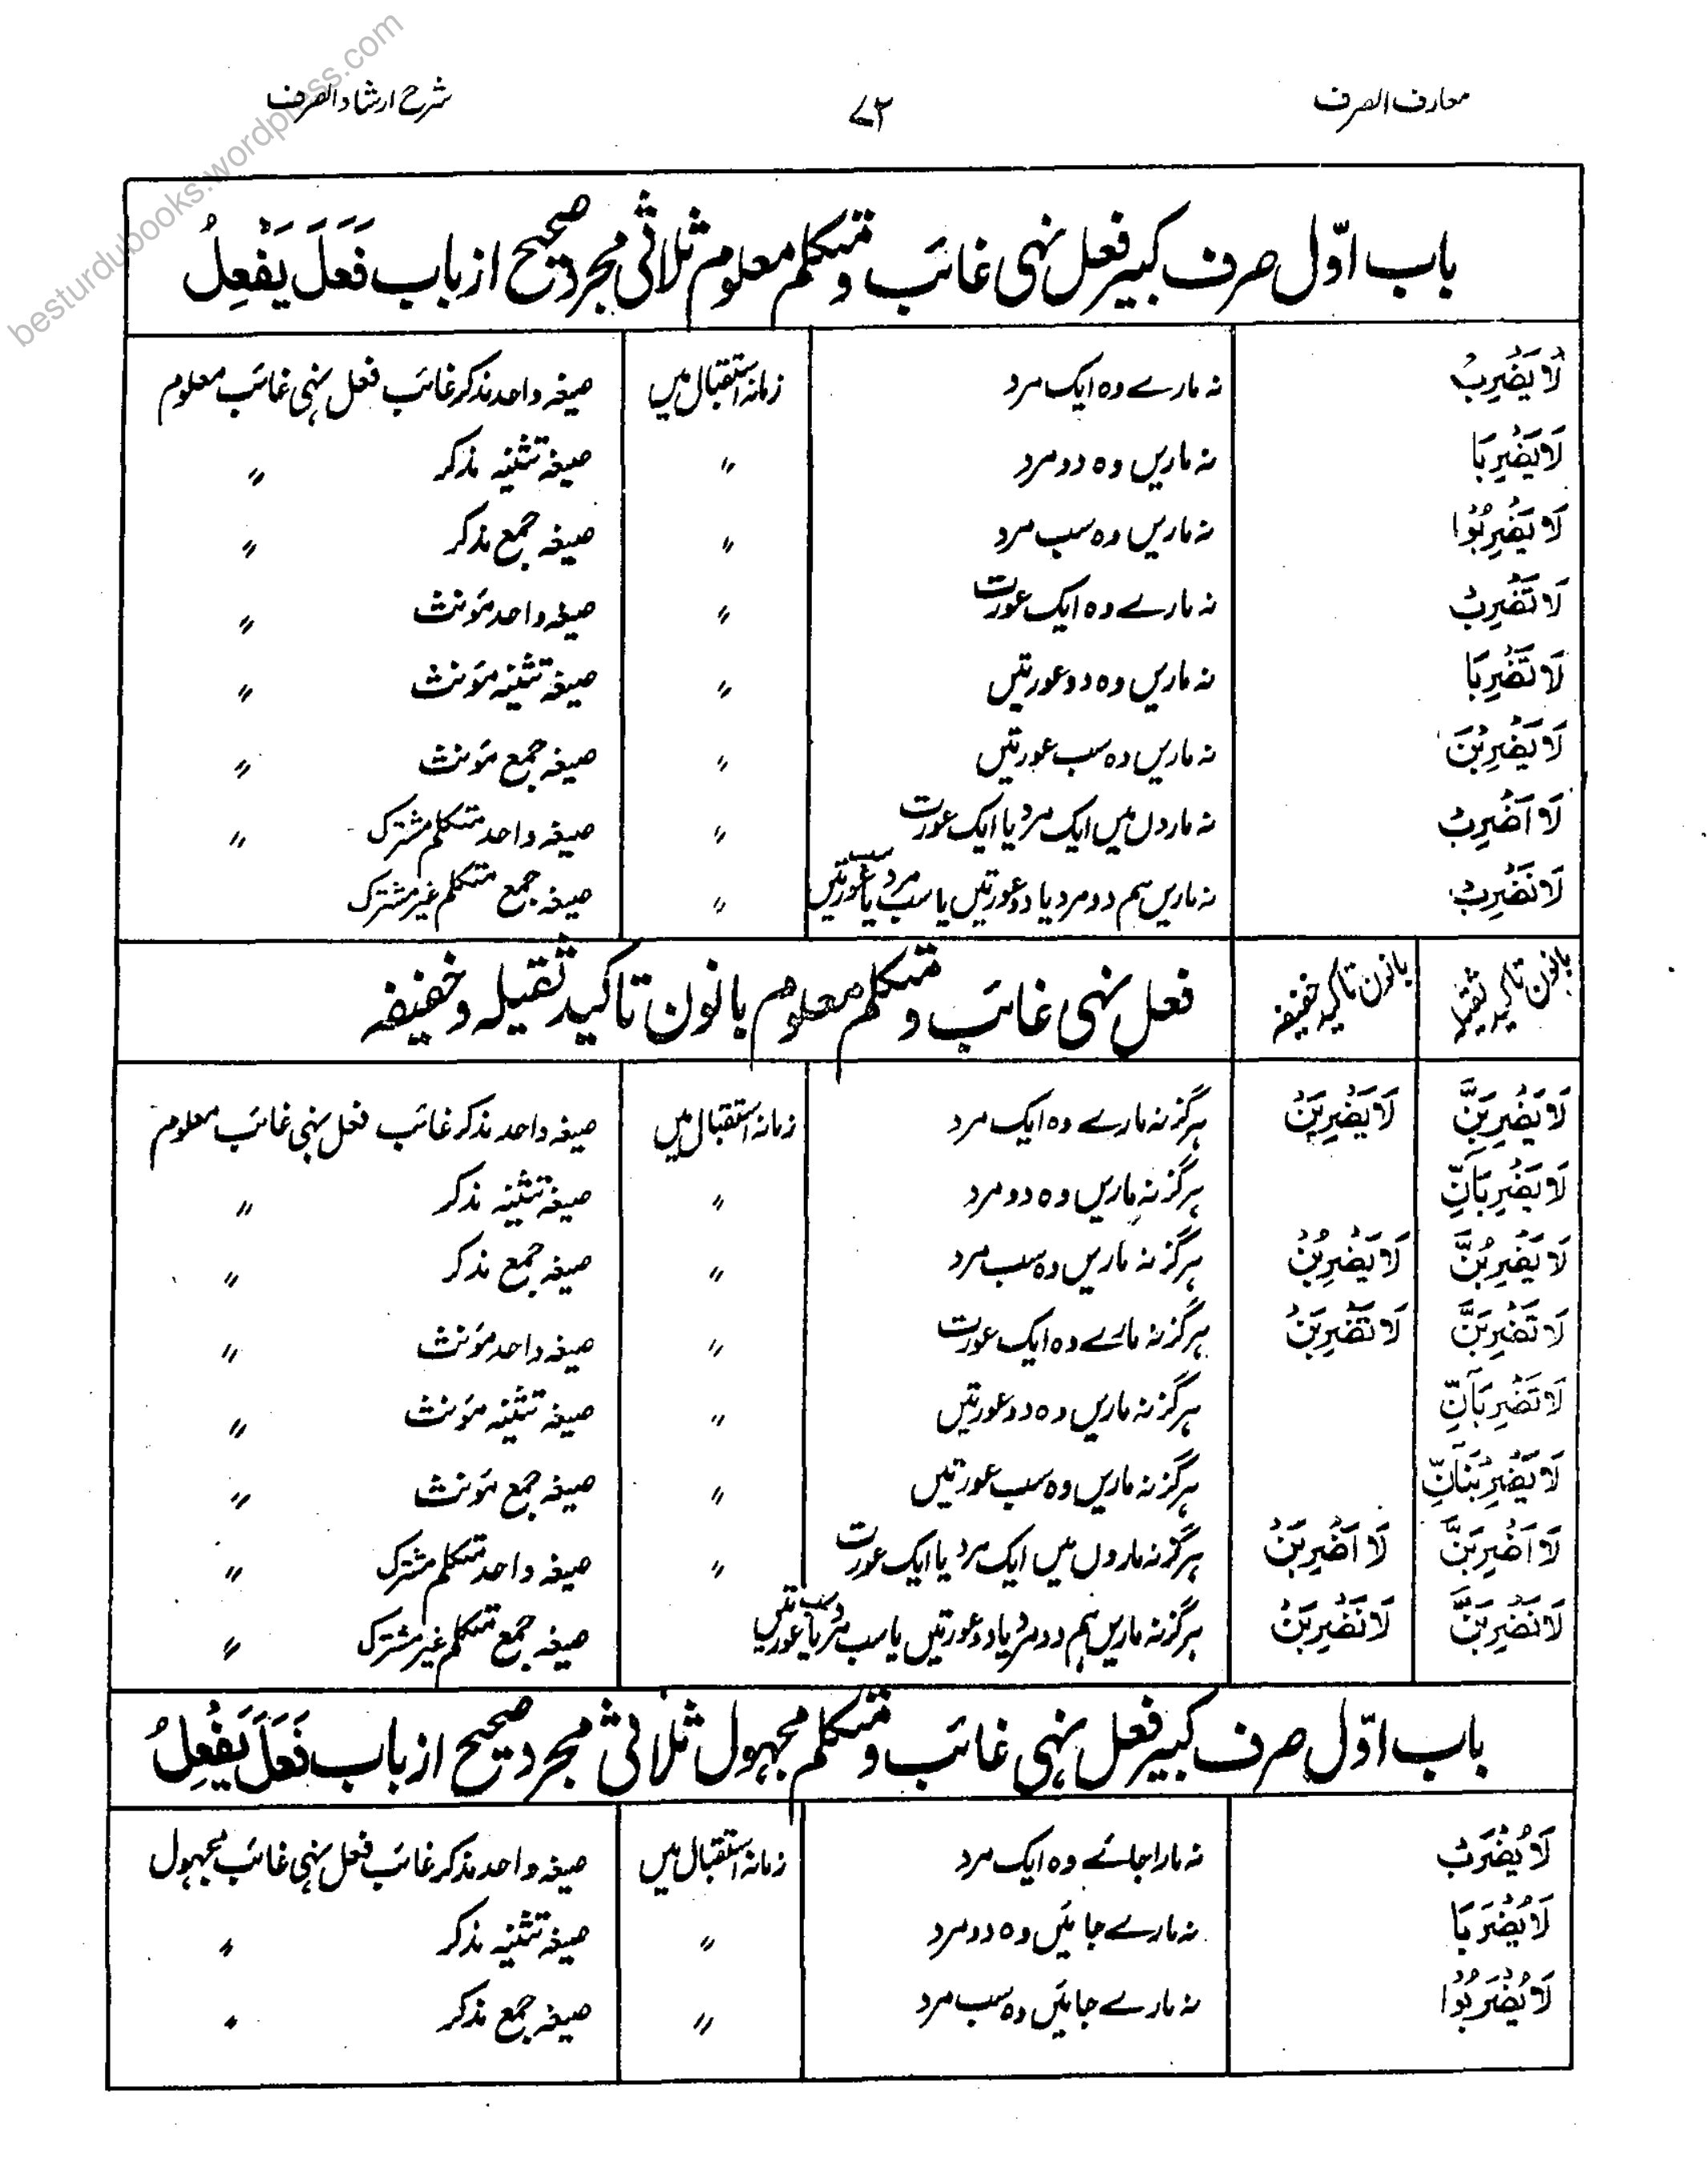 معارف الصرف ۷۲ شرح ارشاد الصرف
باب اوّل صرف کبیر فعل نہی غائب و متکلم معلوم ثلاثی مجرد صحیح از باب فَعَلَ یَفْعِلُ
لَا یَضْرِبْ نہ مارے وہ ایک مرد زمانہ استقبال میں صیغہ واحد مذکر غائب فعل نہی غائب معلوم
لَا یَضْرِبَا نہ ماریں وہ دو مرد 〃 صیغہ تثنیہ مذکر 〃
لَا یَضْرِبُوْا نہ ماریں وہ سب مرد 〃 صیغہ جمع مذکر 〃
لَا تَضْرِبْ نہ مارے وہ ایک عورت 〃 صیغہ واحد مؤنث 〃
لَا تَضْرِبَا نہ ماریں وہ دو عورتیں 〃 صیغہ تثنیہ مؤنث 〃
لَا یَضْرِبْنَ نہ ماریں وہ سب عورتیں 〃 صیغہ جمع مؤنث 〃
لَا اَضْرِبْ نہ ماروں میں ایک مرد یا ایک عورت 〃 صیغہ واحد متکلم مشترک 〃
لَا نَضْرِبْ نہ ماریں ہم دو مرد یا دو عورتیں یا سب مرد یا سب عورتیں 〃 صیغہ جمع متکلم غیر مشترک
بانون تاکید ثقیلہ بانون تاکید خفیفہ فعل نہی غائب و متکلم معلوم بانون تاکید ثقیلہ و خفیفہ
لَا یَضْرِبَنَّ لَا یَضْرِبَنْ ہرگز نہ مارے وہ ایک مرد زمانہ استقبال میں صیغہ واحد مذکر غائب فعل نہی غائب معلوم
لَا یَضْرِبَانِّ ہرگز نہ ماریں وہ دو مرد 〃 صیغہ تثنیہ مذکر 〃
لَا یَضْرِبُنَّ لَا یَضْرِبُنْ ہرگز نہ ماریں وہ سب مرد 〃 صیغہ جمع مذکر 〃
لَا تَضْرِبَنَّ لَا تَضْرِبَنْ ہرگز نہ مارے وہ ایک عورت 〃 صیغہ واحد مؤنث 〃
لَا تَضْرِبَانِّ ہرگز نہ ماریں وہ دو عورتیں 〃 صیغہ تثنیہ مؤنث 〃
لَا یَضْرِبْنَانِّ ہرگز نہ ماریں وہ سب عورتیں 〃 صیغہ جمع مؤنث 〃
لَا اَضْرِبَنَّ لَا اَضْرِبَنْ ہرگز نہ ماروں میں ایک مرد یا ایک عورت 〃 صیغہ واحد متکلم مشترک 〃
لَا نَضْرِبَنَّ لَا نَضْرِبَنْ ہرگز نہ ماریں ہم دو مرد یا دو عورتیں یا سب مرد یا سب عورتیں صیغہ جمع متکلم غیر مشترک 〃
باب اوّل صرف کبیر فعل نہی غائب و متکلم مجہول ثلاثی مجرد صحیح از باب فَعَلَ یَفْعِلُ
لَا یُضْرَبْ نہ مارا جائے وہ ایک مرد زمانہ استقبال میں صیغہ واحد مذکر غائب فعل نہی غائب مجہول
لَا یُضْرَبَا نہ مارے جائیں وہ دو مرد 〃 صیغہ تثنیہ مذکر 〃
لَا یُضْرَبُوْا نہ مارے جائیں وہ سب مرد 〃 صیغہ جمع مذکر 〃
besturdubooks.wordpress.com